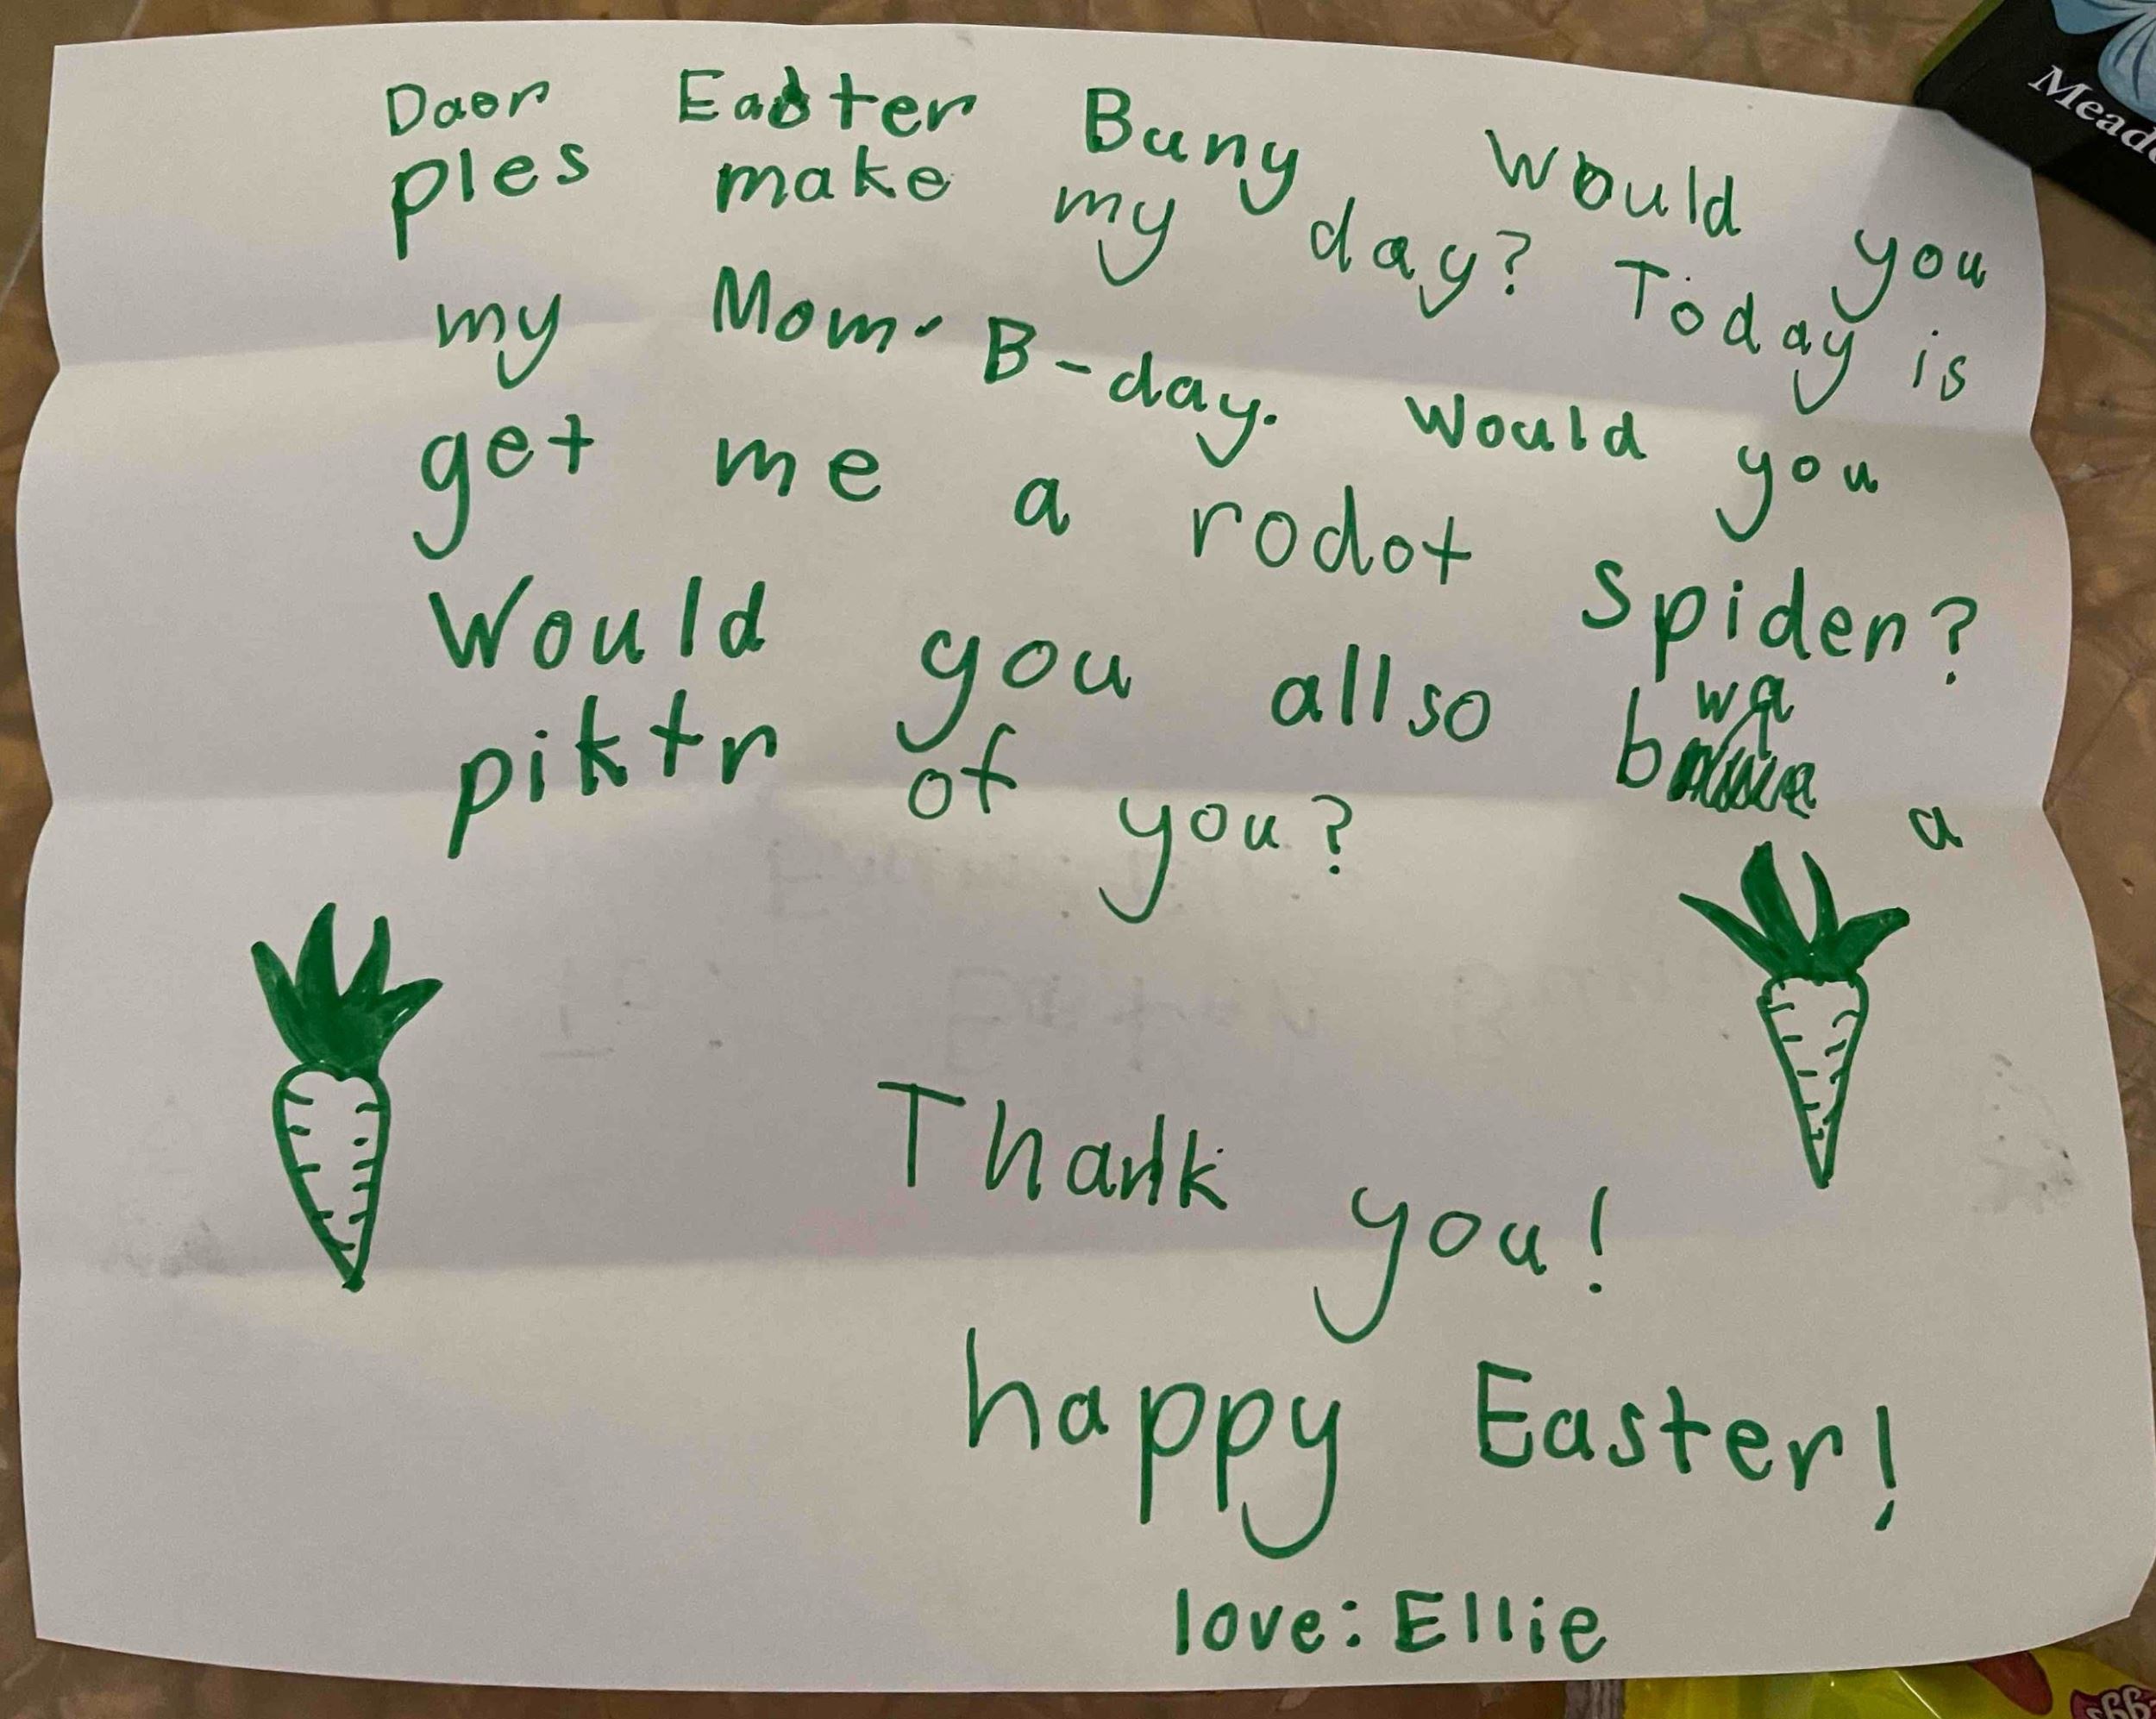 Daer Easter Buny Would you
ples make my day? Today is
my Mom B-day. Would you
get me a rodot spider?
Would you allso bwa a
piktr of you?
Thank you!
happy Easter!
love: Ellie
Mead